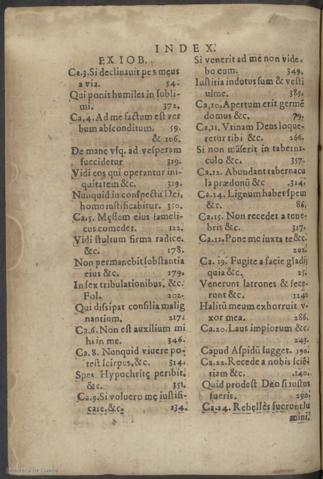 INDEX.
EX IOB.
Ca.3. Si declinauit pes meus
a via. 34.
Qui ponit humiles in subli-
mi. 372.
Ca.4. Ad me factum est ver
bum absconditum. 59.
& 106.
De mane vsq. ad vesperam
succidetur 319.
Vidi eos qui operantur ini-
quitatem &c. 319.
Nunquid in conspectu Dei,
homo iustificabitur. 350.
Ca.5. Męssem eius fameli-
cus comedet. 122.
Vidi stultum firma radice.
&c. 178.
Non permanebit substantia
eius &c. 179.
In sex tribulationibus, &c.
Fol. 202.
Qui dissipat consilia malig
nantium. 217.
Ca.6. Non est auxilium mi
hi in me. 346.
Ca.8. Nonquid viuere po-
test scirpus, &c. 314.
Spes Hypochritę peribit,
&c. 351.
Ca.9. Si voluero me iustifi-
care, &c. 234.
Si venerit ad me non vide-
bo eum. 349.
Iustitia indutus sum & vesti
uime. 385.
Ca.10. Apertum erit germē
domus &c. 79.
Ca.11. Vtinam Deus loque-
retur tibi &c. 266.
Si non māserit in taberni-
culo &c. 357.
Ca.12. Abundant tabernacu
la prædonū &c. 314.
Ca.14. Lignum habet spem
&c. 86.
Ca.15. Non recedet a tene-
bris &c. 317.
Ca.17. Pone me iuxta te &c.
202.
Ca.19. Fugite a facie gladij
quia &c. 25.
Venerunt latrones & fece-
runt &c. 114.
Halitū meum exhorruit v-
xor mea. 286.
Ca.20. Laus impiorum &c.
243.
Caput Aspidū sugget. 190.
Ca.22. Recede a nobis sciē-
tiam &c. 140.
Quid prodest Deo si iustus
fueris. 290.
Ca.24. Rebelles fuerunt lu
mini.